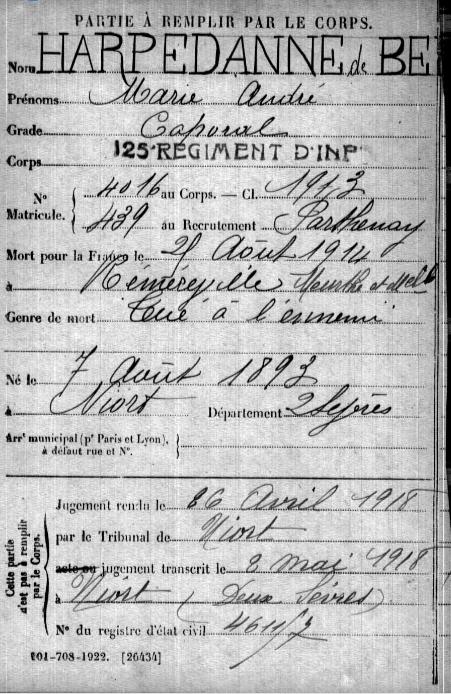 PARTIE À REMPLIR PAR LE CORPS.
Nom HARPEDANNE de BE
Prénoms Marie André
Grade Caporal
Corps 125e RÉGIMENT D'INF
N° Matricule. 4016 au Corps. — Cl. 1913
439 au Recrutement Parthenay
Mort pour la France le Août 1914
à Réméréville Meurthe et
Genre de mort Tué à l'ennemi
Né le 7 Août 1893
à Niort Département 2 Sèvres
Arrt municipal (pr Paris et Lyon),
à défaut rue et N°.
Cette partie
n'est pas à remplir
par le Corps.
Jugement rendu le 26 Avril 1918
par le Tribunal de Niort
acte ou jugement transcrit le 2 mai 1918
à Niort (Deux Sèvres)
N° du registre d'état civil 
101-708-1922. [26434]